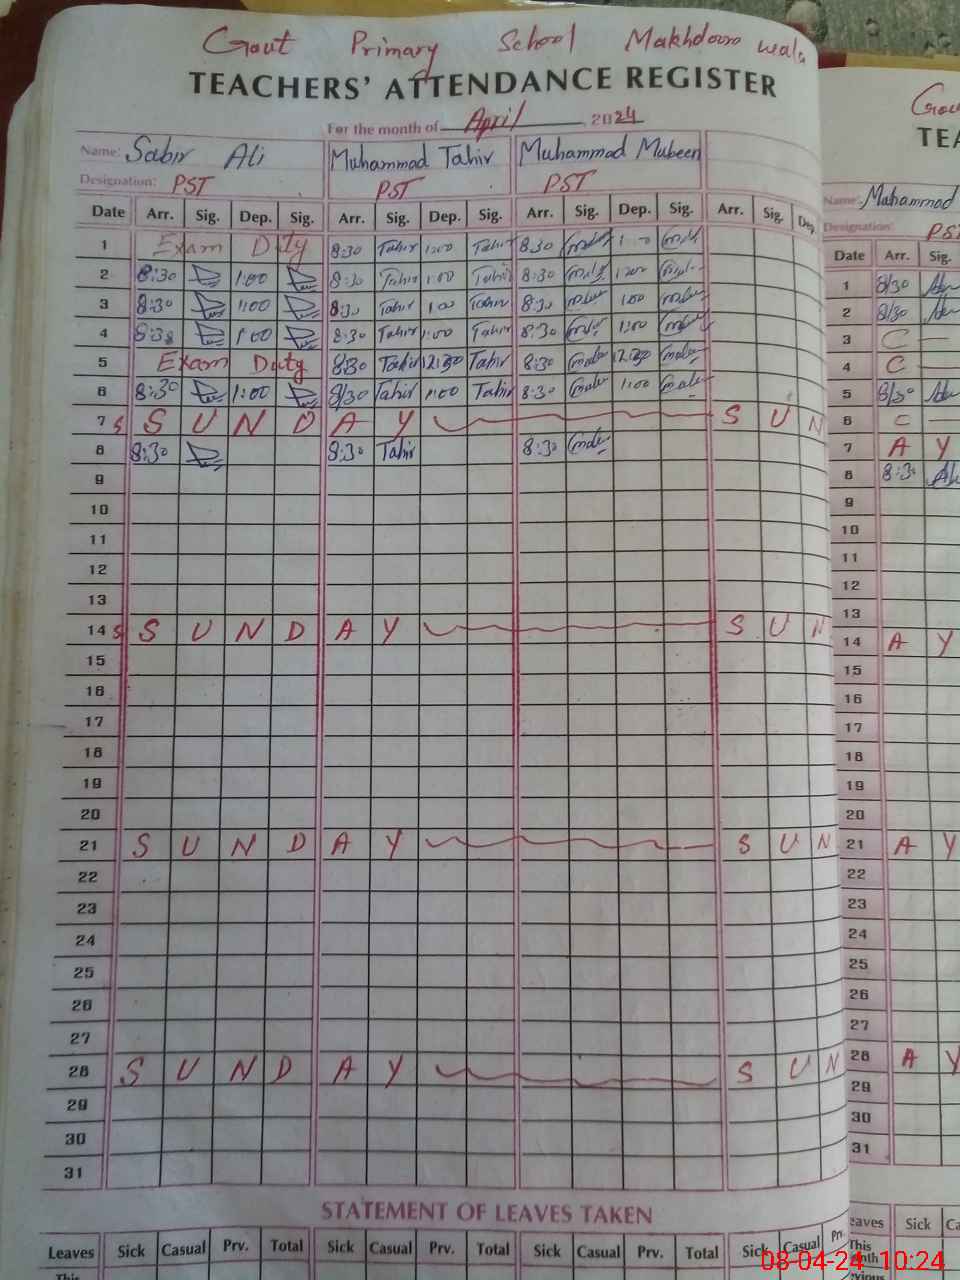 Govt Primary School Makhdoom wala
TEACHERS' ATTENDANCE REGISTER
For the month of April, 2024
Name: Sabir Ali Muhammad Tahir Muhammad Mubeen
Designation: PST PST PST
Date Arr. Sig. Dep. Sig. Arr. Sig. Dep. Sig. Arr. Sig. Dep. Sig. Arr. Sig. Dep.
1 Exam Duty 8:30 Tahir 1:00 Tahir 8:30
2 8:30 1:00 8:30 Tahir 1:00 Tahir 8:30 1:00
3 8:30 1:00 8:30 Tahir 1:00 Tahir 8:30 1:00
4 8:30 1:00 8:30 Tahir 1:00 Tahir 8:30 1:00
5 Exam Duty 8:30 Tahir 12:30 Tahir 8:30 12:30
6 8:30 1:00 8/30 Tahir 1:00 Tahir 8:30 1:00
7 S S U N D A Y S U N
8 8:30 8:30 Tahir 8:30
9
10
11
12
13
14 S S U N D A Y S U N
15
16
17
18
19
20
21 S U N D A Y S U N
22
23
24
25
26
27
28 S U N D A Y S U N
29
30
31
STATEMENT OF LEAVES TAKEN
Leaves Sick Casual Prv. Total Sick Casual Prv. Total Sick Casual Prv. Total Sick Casual Prv.
This
Name: Muhammad
Designation: PST
Date Arr. Sig.
1 8/30
2 8/30
3 C
4 C
5 8/30
6 C
7 A Y
8 8:30
9
10
11
12
13
14 A Y
15
16
17
18
19
20
21 A Y
22
23
24
25
26
27
28 A Y
29
30
31
Sick
This
08-04-24 10:24